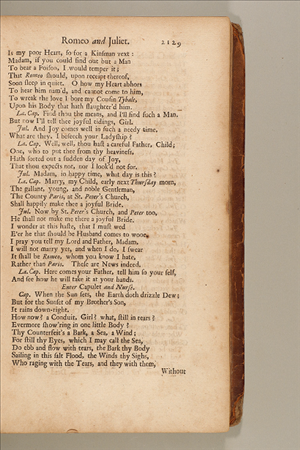 Romeo and Juliet. 2129
Is my poor Heart, so for a Kinsman vext:
Madam, if you could find out but a Man
To bear a Poison, I would temper it;
That Romeo should, upon receipt thereof,
Soon sleep in quiet. O how my Heart abhors
To hear him nam'd, and cannot come to him,
To wreak the love I bore my Cousin Tybalt,
Upon his Body that hath slaughter'd him.
La. Cap. Find thou the means, and I'll find such a Man.
But now I'll tell thee joyful tidings, Girl.
Jul. And Joy comes well in such a needy time.
What are they, I beseech your Ladyship?
La. Cap. Well, well, thou hast a careful Father, Child;
One, who to put thee from thy heaviness,
Hath sorted out a sudden day of Joy,
That thou expects not, nor I look'd not for.
Jul. Madam, in happy time, what day is this?
La. Cap. Marry, my Child, early next Thursday morn,
The gallant, young, and noble Gentleman,
The County Paris, at St. Peter's Church,
Shall happily make thee a joyful Bride.
Jul. Now by St. Peter's Church, and Peter too,
He shall not make me there a joyful Bride.
I wonder at this haste, that I must wed
E'er he that should be Husband comes to wooe.
I pray you tell my Lord and Father, Madam,
I will not marry yet, and when I do, I swear
It shall be Romeo, whom you know I hate,
Rather than Paris. These are News indeed.
La. Cap. Here comes your Father, tell him so your self,
And see how he will take it at your hands.
Enter Capulet and Nurse.
Cap. When the Sun sets, the Earth doth drizzle Dew;
But for the Sunset of my Brother's Son,
It rains down-right.
How now? a Conduit, Girl? what, still in tears?
Evermore show'ring in one little Body?
Thy Counterfeit's a Bark, a Sea, a Wind;
For still thy Eyes, which I may call the Sea,
Do ebb and flow with tears, the Bark thy Body
Sailing in this salt Flood, the Winds thy Sighs,
Who raging with the Tears, and they with them,
Without